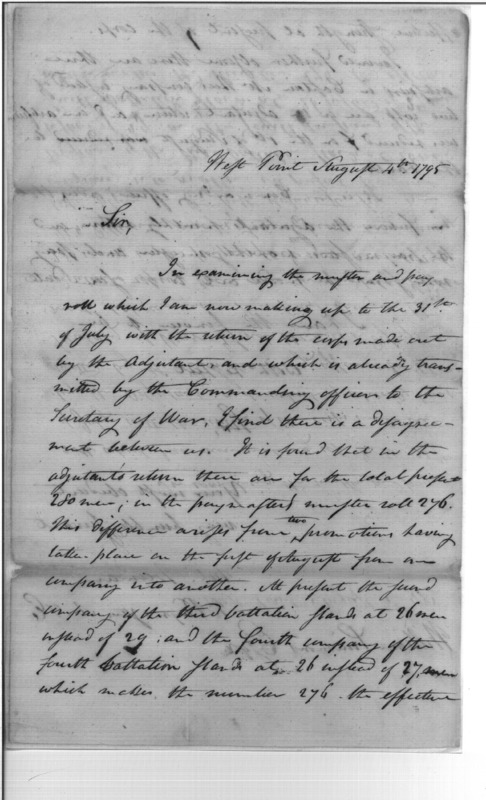 West Point August 4th 1795
Sir,
In examining the muster and pay
roll which I am now making up to the 31st
of July with the return of the corps made out
by the Adjutant, and which is already trans-
mitted by the Commanding officer to the
Secretary of War, I find there is a disagree-
ment between us. It is found that in the
adjutant's return there are for the total present
280 men; in the paymasters muster roll 276.
This difference arises from two promotions having
taken place on the first of August from one
company into another. At present the second
company of the third battalion stands at 26 men
instead of 29: and the fourth company of the
fourth battalion stands at 26 instead of 27, men
which makes the number 276. the effective